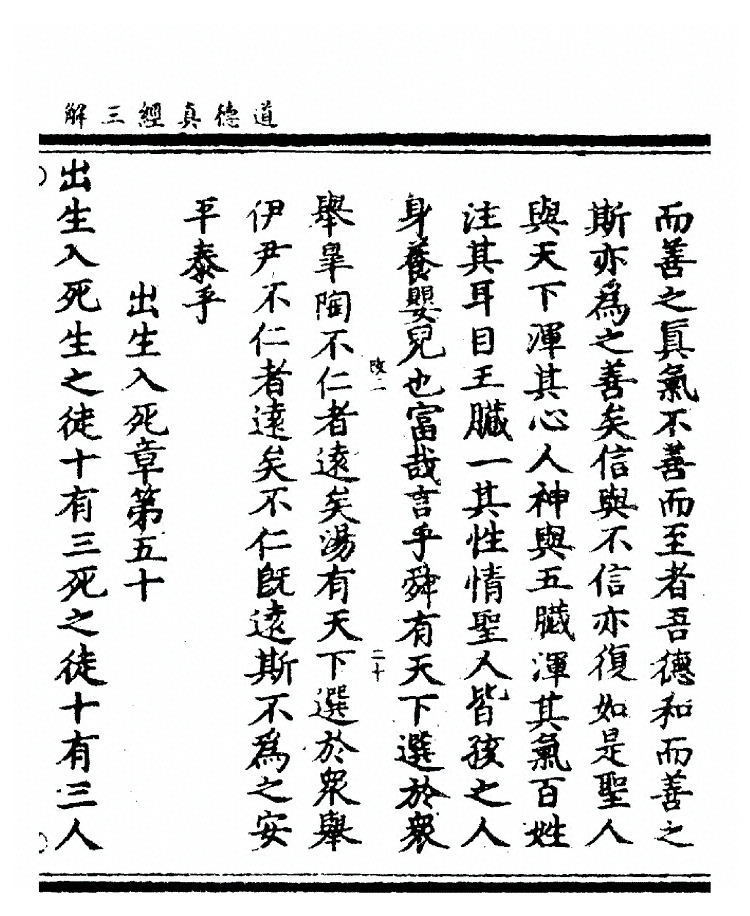 道德真經三解
而善之眞氣不善而至者吾德和而善之
斯亦爲之善矣信與不信亦復如是聖人
與天下渾其心人神與五臟渾其氣百姓
注其耳目王臟一其性情聖人皆孩之人
身養嬰兒也富哉言乎舜有天下選於衆
改二
二十
舉臯陶不仁者遠矣湯有天下選於衆舉
伊尹不仁者遠矣不仁旣遠斯不爲之安
平泰乎
出生入死章第五十
出生入死生之徒十有三死之徒十有三人